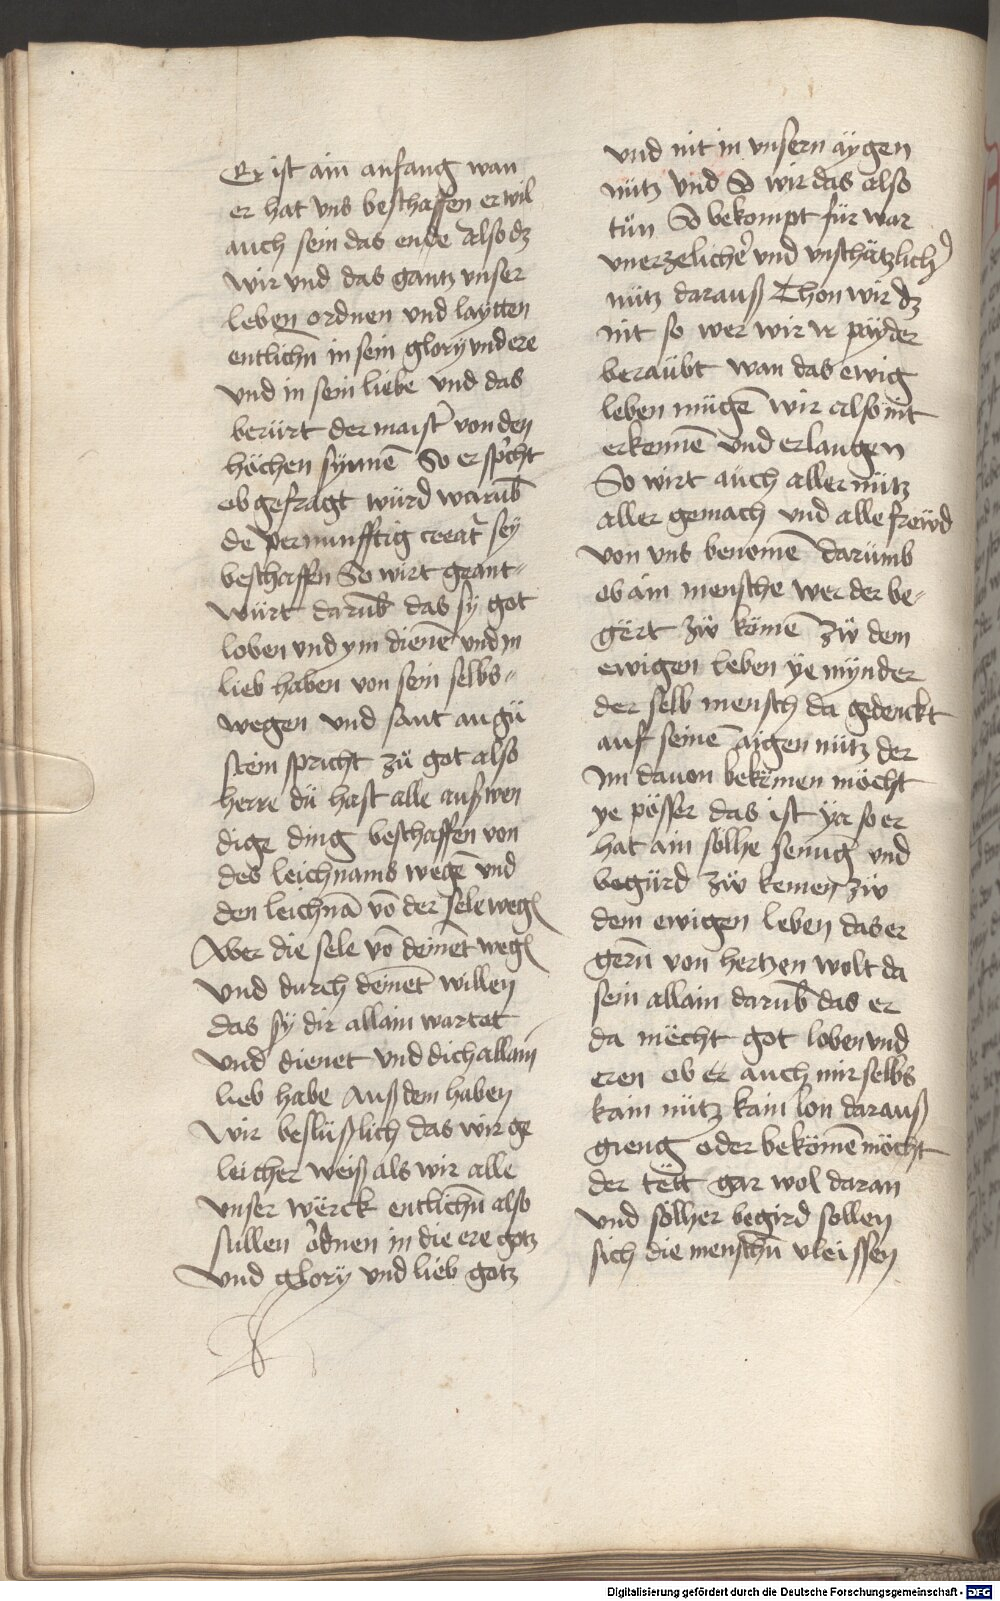 Er ist ain anfang wan
er hat vns beschaffen er wil
auch sein das ende Also dz
wir vnd das gantz vnser
leben ordnen vnd laytten
entlichn̄ in sein glory vnd ere
vnd in sein liebe vnd das
berürt der maist̄ von den
höchen synnē So er spͥcht
ob gefragt würd warūb
de vernunfftig creat̄ sey
beschaffen So wirt geant-
würt darūb das sy got
loben vnd ym dienē vnd in
lieb haben von sein selbs-
wegen vnd sant augü
stein spricht zü got also
herre dü hast alle außwen
dige ding beschaffen von
des leichnams wegē vnd
den leichnā vō der sele weg
Aber die sele vō deinēt weg
Vnd durch deinēt willen
das sy dir allain wartet
vnd dienet vnd dich allain
lieb habe Auß dem haben
wir beslüßlich das wir ge
leicher weiß als wir alle
vnser wërck entlichn̄ also
süllen o᷑dnen in die ere gotz
vnd glory vnd lieb gotz
vnd nit in vnsern äygen
nütz vnd So wir das also
tün So bekompt für war
vnerzelicher̄ vnd vnschätzlich̄
nütz darauß Thon wir dz
nit so wer wir ir päyder
beraübt wan das ewig
leben mügē wir also nit
erkennē vnd erlangen
So wirt auch aller nütz
aller gemach vnd alle freẅd
von vns benomē darümb
ob ain mensche wer der be-
gërt zü kömē zü dem
ewigen leben ye mynder
der selb mensch da gedenckt
auf seinē aigen nütz der
Im dauon bekëmen möcht
ye pösser das ist ya so er
hat ain sölhe senūg vnd
begürd zü kemen zü
dem ewigen leben das er
gern̄ von hertzen wolt da
sein allain darūb das er
da mëcht got loben vnd
eren ob er auch nir selbs
kain nütz kain lon darauß
gieng oder bekömē möcht
der tëtt gar wol daran
vnd sölher begird sollen
sich die menschn̄ vleissen
Digitalisierung gefördert durch die Deutsche Forschungsgemeinschaft - DFG